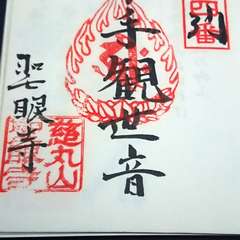 番
手観世音
聖眼寺
慈丸山